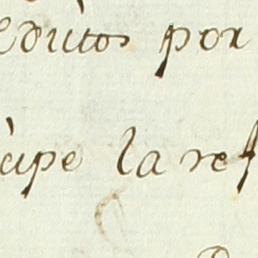 editos por
cipe la ref